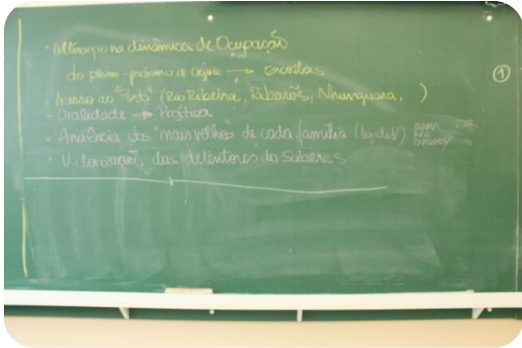 • Alteração na dinâmica de Ocupação
do plano - próximo a água → Encostas
①
• Acesso ao "Porto" (Rio Ribeira, Ribeirões, Nhunguara, )
• Oralidade → Prática
• Anuência dos mais velhos de cada família
• Valorização dos detentores do Saberes